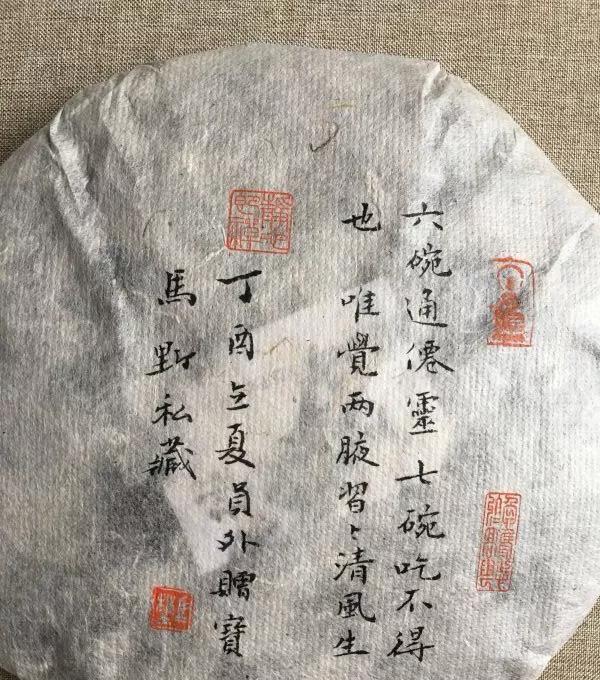 六碗通僊靈七碗吃不得
也 唯覺两腋習〻清風生
丁酉立夏員外贈寶
馬野私藏